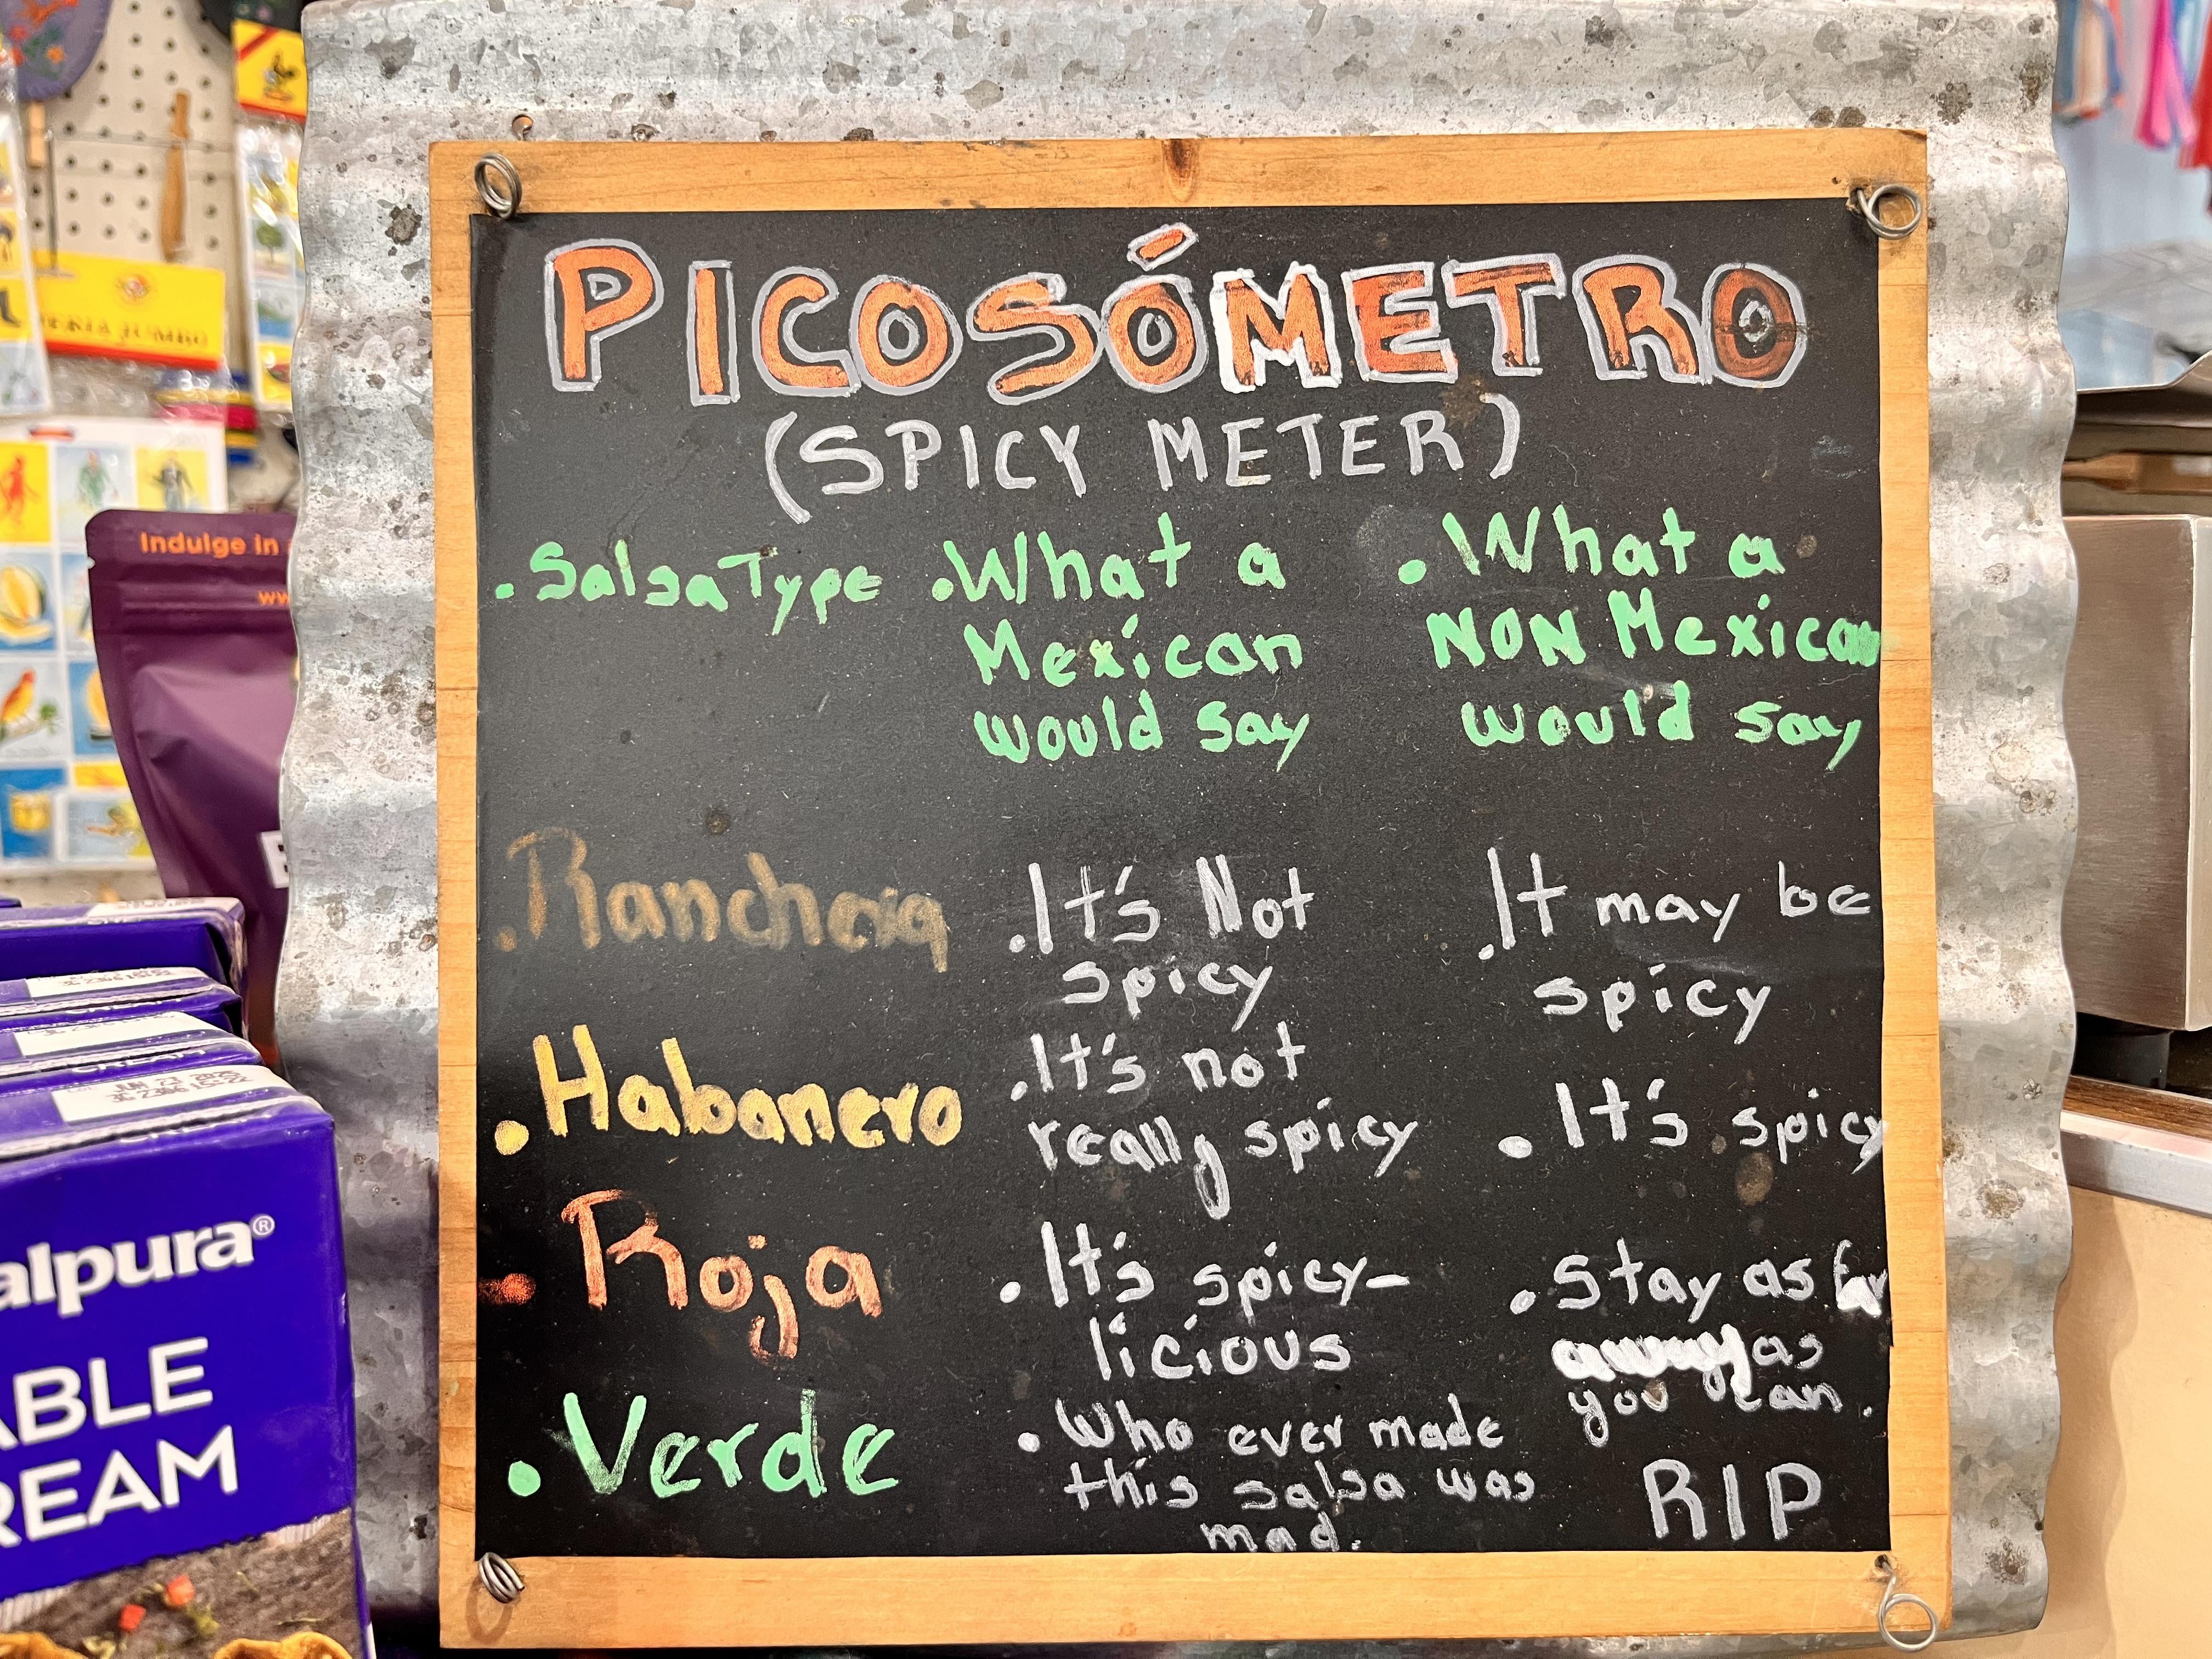 PICOSÓMETRO
(SPICY METER)
. Salsa Type
. What a
Mexican
would say
. What a
NON Mexican
would say
. Ranchera
. It's Not
spicy
. It may be
spicy
. Habanero
. It's not
really spicy
. It's spicy
. Roja
. It's spicy-
licious
. stay as far
away as
you can.
. Verde
. Who ever made
this salsa was
mad.
RIP
Indulge in
alpura®
ABLE
REAM